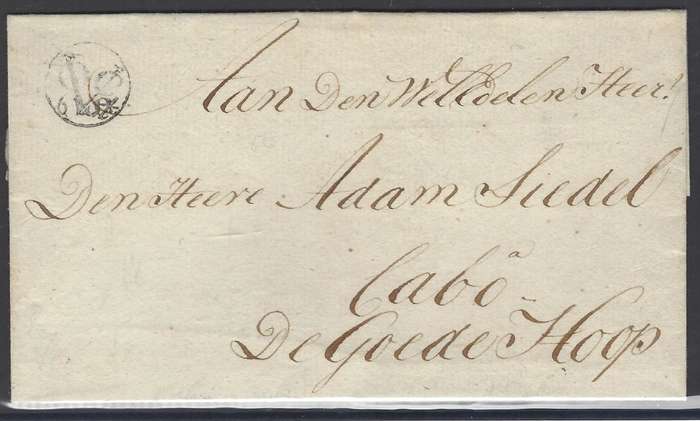 Aan Den WelEdelen Heer!
Den Heere Adam Siedel
a
Cabo
De Goede Hoop